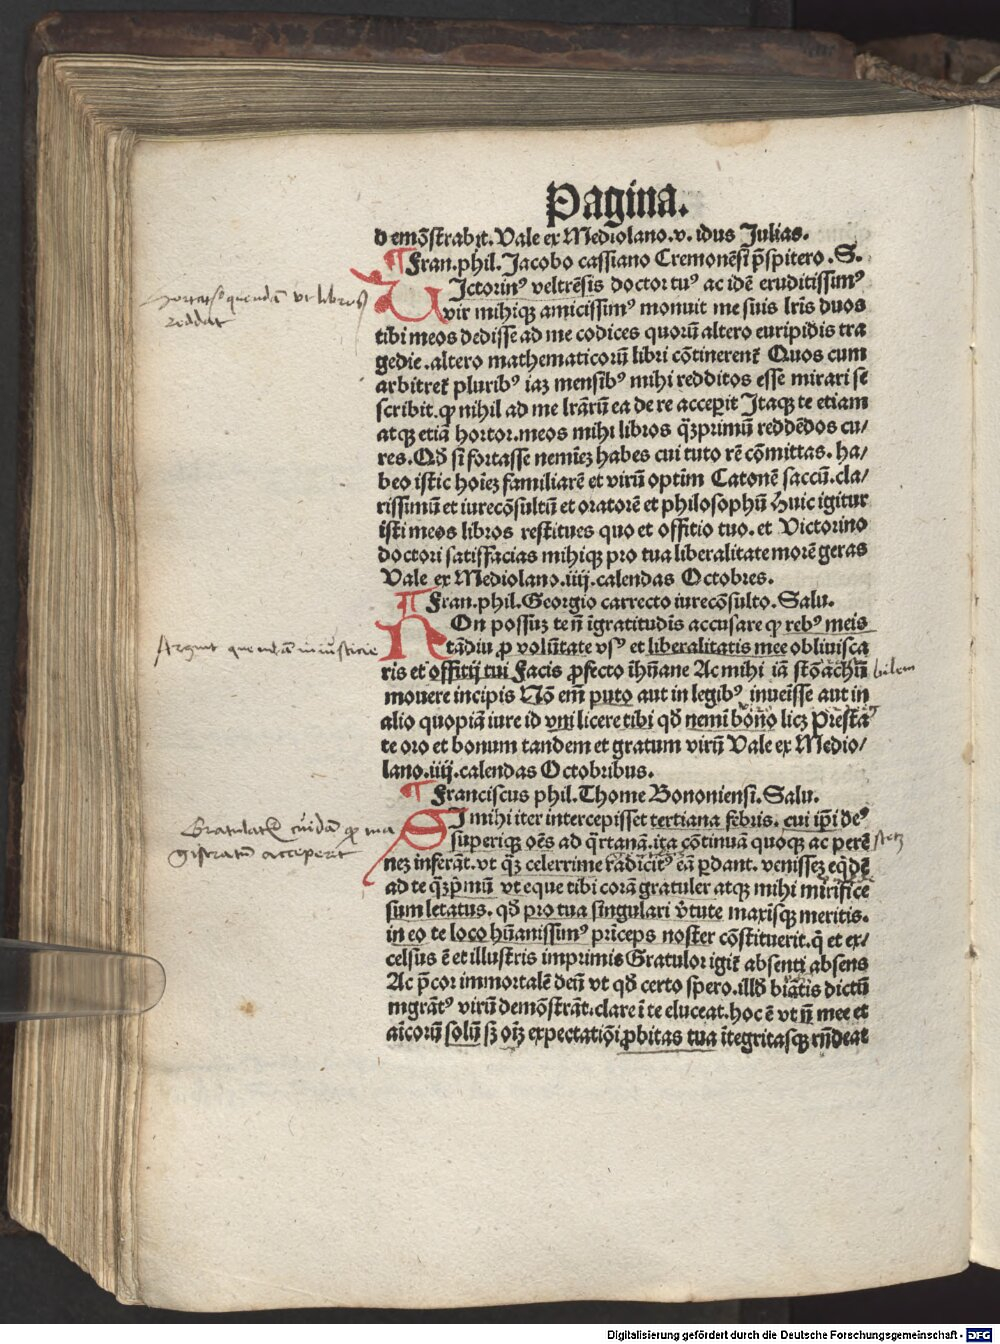 Pagina.
demõstrabit. Vale ex Mediolano. v. idus Julias.
¶ Fran. phil. Jacobo cassiano Cremonēsi p̄spitero. S.
Victorinꝰ veltrēsis doctor tuꝰ ac idē eruditissimꝰ
vir mihiqꝫ amicissimꝰ monuit me suis lr̄is duos
tibi meos dedisse ad me codices quorū altero euripidis tra
gedie. altero mathematicorū libri cōtinerent̃ Quos cum
arbitret̃ pluribꝰ iaz mensibꝰ mihi redditos esse mirari se
scribit. qꝙ nihil ad me lr̄arū ea de re acceperit Itaqꝫ te etiam
atqꝫ etiā hortor. meos mihi libros qͣꝫprimū reddēdos cu/
res. Qd̄ si fortasse neminēz habes cui tuto rē cōmittas. ha/
beo istic hoīez familiarē et virū optim̄ Catonē saccū. cla/
rissimū et iurecōsultū et oratorē et philosophū Huic igitur
isti meos libros restitues quo et offitio tuo. et Victorino
doctori satisfacias mihiqꝫ pro tua liberalitate morē geras
Vale ex Mediolano. iiij. calendas Octobres.
¶ Fran. phil. Georgio carrecto iurecōsulto. Salu.
NOn possuz te nō īgratitudis accusare qꝙ rebꝰ meis
tādiu ꝓ volūtate vsꝰ et liberalitatis mee obliuisca
ris et offitij tui Facis ꝓfecto ihūane Ac mihi iā stōachū
bilem
mouere incipis Nō em̄ puto aut in legibꝰ inueīsse aut in
alio quopiā iure id vni licere tibi qd̄ nemī bōno licz Prestaꝰ
te oro et bonum tandem et gratum virū Vale ex Medio/
lano. iiij. calendas Octobribus.
¶ Franciscus phil. Thome Bononiensi. Salu.
SI mihi iter intercepisset tertiana febris. cui ip̄i deꝰ
superiqꝫ oēs ad qͣrtanā. ita cōtinuā quoqꝫ ac perē
nez inferāt. vt qͣꝫ celerrime radicitꝰ eā ꝑdant. venissez eqdē
ad te qͣꝫp̄mū vt eque tibi corā gratuler atqꝫ mihi mirifice
sum letatus. qd̄ pro tua singulari v̄tute maxisqꝫ meritis.
in eo te loco hūanissimꝰ prīceps noster cōstituerit. qi et ex/
celsus ē et illustris imprimis Gratulor igit̃ absenti absens
Ac p̄cor immortalē deū vt qd̄ certo spero. illd̄ biātis dictū
mgr̄atꝰ virū demōstrāt. clare i te eluceat. hoc ē vt nō mee et
aīcorū solū sꝫ oīꝫ expectatiōi ꝓbitas tua ītegritasqꝫ rn̄deat
Hortat quendā vt libros
reddat
Arguit quendā iniusticie
Gratulatur cuidā qꝙ ma
gistratū acceperit